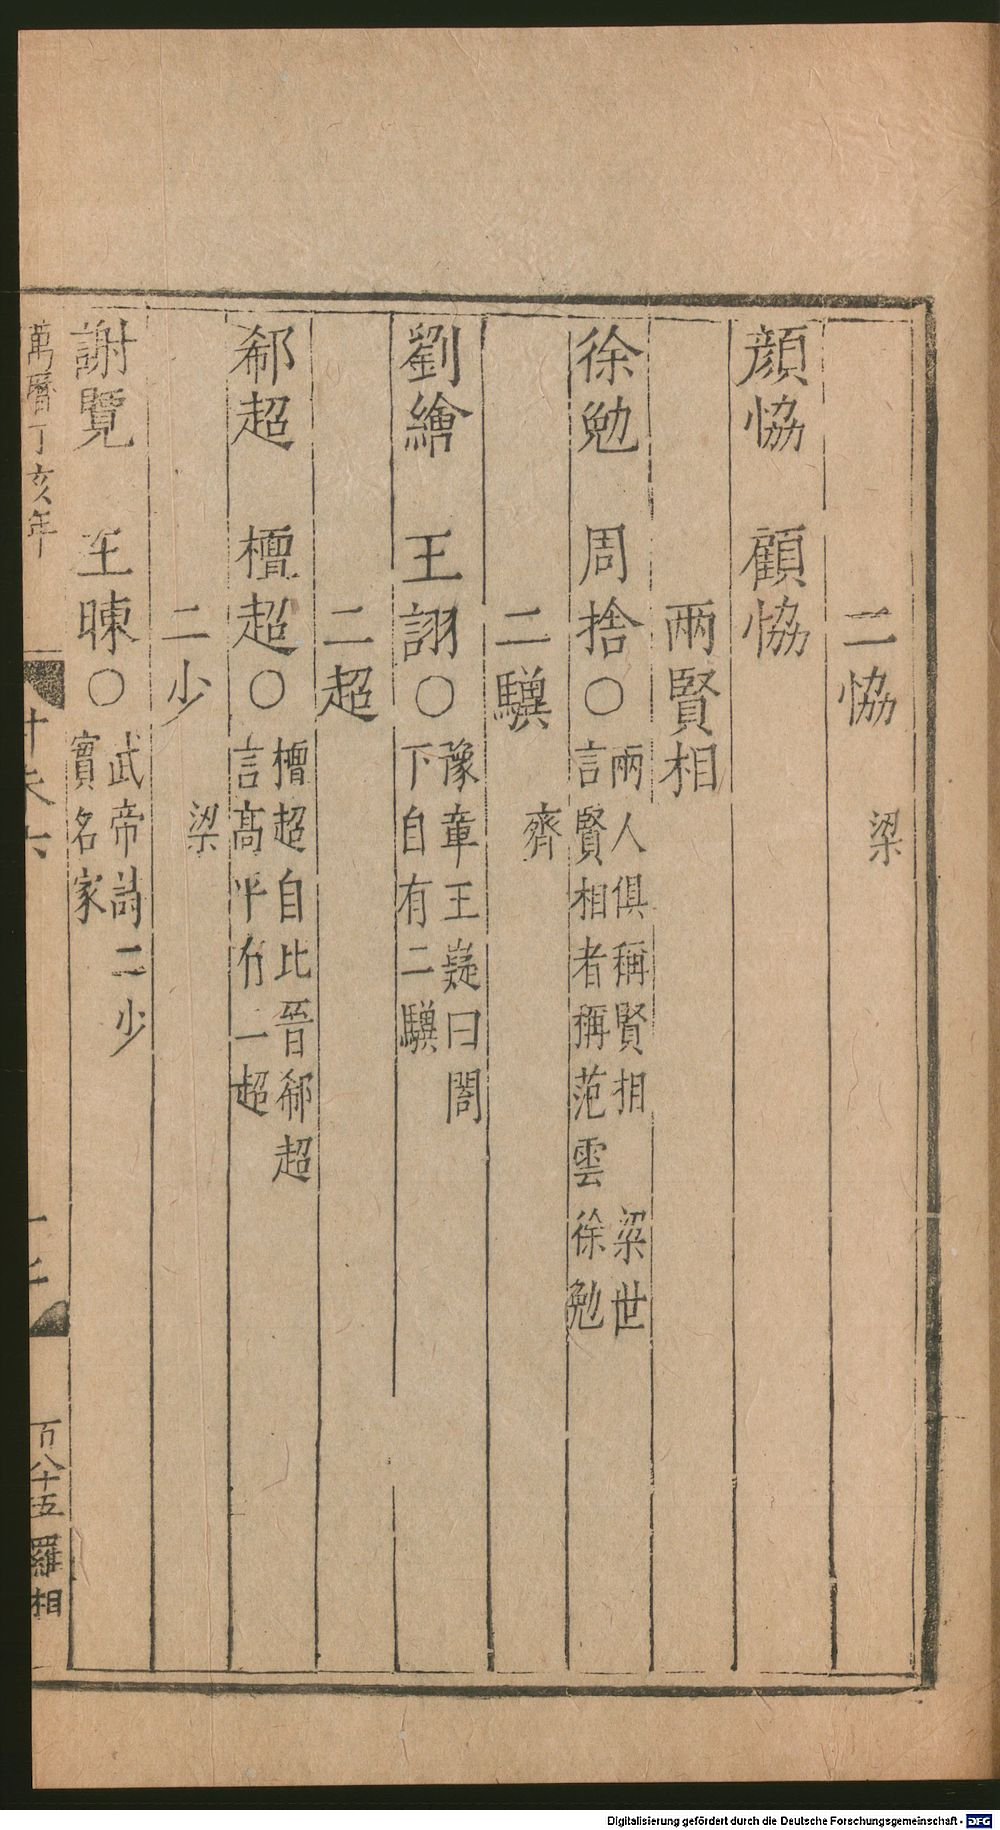 二恊 梁
顔恊 顧恊
兩賢相
徐勉 周捨〇 兩人俱稱賢相 梁世
言賢相者稱范雲徐勉
二驥 齊
劉繪 王詡〇 豫章王嶷曰閤
下自有二驥
二超
郗超 檀超〇 檀超自比晉郗超
言髙平有二超
二少 梁
謝覽 王暕〇 武帝詩二少
實名家
萬曆丁亥年
百八十五 羅相
Digitalisierung gefördert durch die Deutsche Forschungsgemeinschaft - DFG